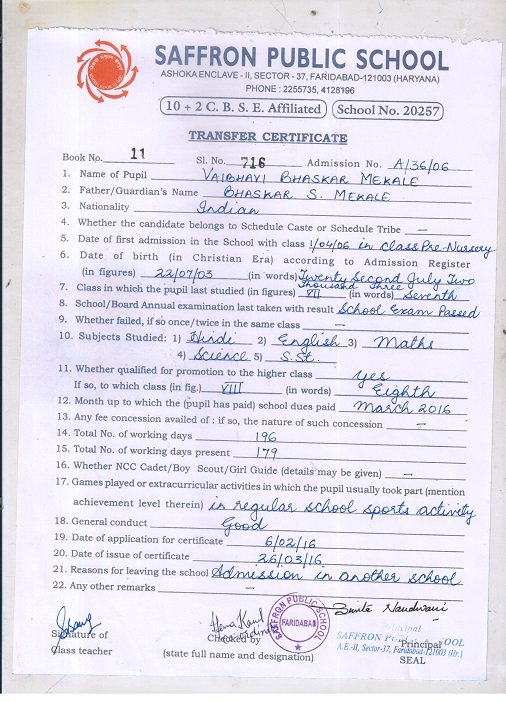 SAFFRON PUBLIC SCHOOL
ASHOKA ENCLAVE - II, SECTOR - 37, FARIDABAD-121003 (HARYANA)
PHONE : 2255735, 4128196
10 + 2 C. B. S. E. Affiliated School No. 20257
TRANSFER CERTIFICATE
Book No. 11 Sl. No. 716 Admission No. A/36/06
1. Name of Pupil VAIBHAVI BHASKAR MEKALE
2. Father/Guardian's Name BHASKAR S. MEKALE
3. Nationality Indian
4. Whether the candidate belongs to Schedule Caste or Schedule Tribe —
5. Date of first admission in the School with class 1/04/06 in class Pre-Nursery
6. Date of birth (in Christian Era) according to Admission Register
(in figures) 22/07/03 (in words) Twenty Second July Two
Thousand Three
7. Class in which the pupil last studied (in figures) VII (in words) Seventh
8. School/Board Annual examination last taken with result School Exam Passed
9. Whether failed, if so once/twice in the same class —
10. Subjects Studied: 1) Hindi 2) English 3) Maths
4) Science 5) S.St.
11. Whether qualified for promotion to the higher class yes
If so, to which class (in fig.) VIII (in words) Eighth
12. Month up to which the (pupil has paid) school dues paid March 2016
13. Any fee concession availed of : if so, the nature of such concession —
14. Total No. of working days 196
15. Total No. of working days present 179
16. Whether NCC Cadet/Boy Scout/Girl Guide (details may be given) —
17. Games played or extracurricular activities in which the pupil usually took part (mention
achievement level therein) in regular school sports activity
18. General conduct Good
19. Date of application for certificate 6/02/16
20. Date of issue of certificate 26/03/16
21. Reasons for leaving the school Admission in another school
22. Any other remarks —
SAFFRON PUBLIC SCHOOL
FARIDABAD
Signature of
class teacher
Checked by
(state full name and designation)
Principal
SAFFRON PUBLIC SCHOOL
A.E.-II, Sector-37, Faridabad-121003 (Hr.)
Principal
SEAL